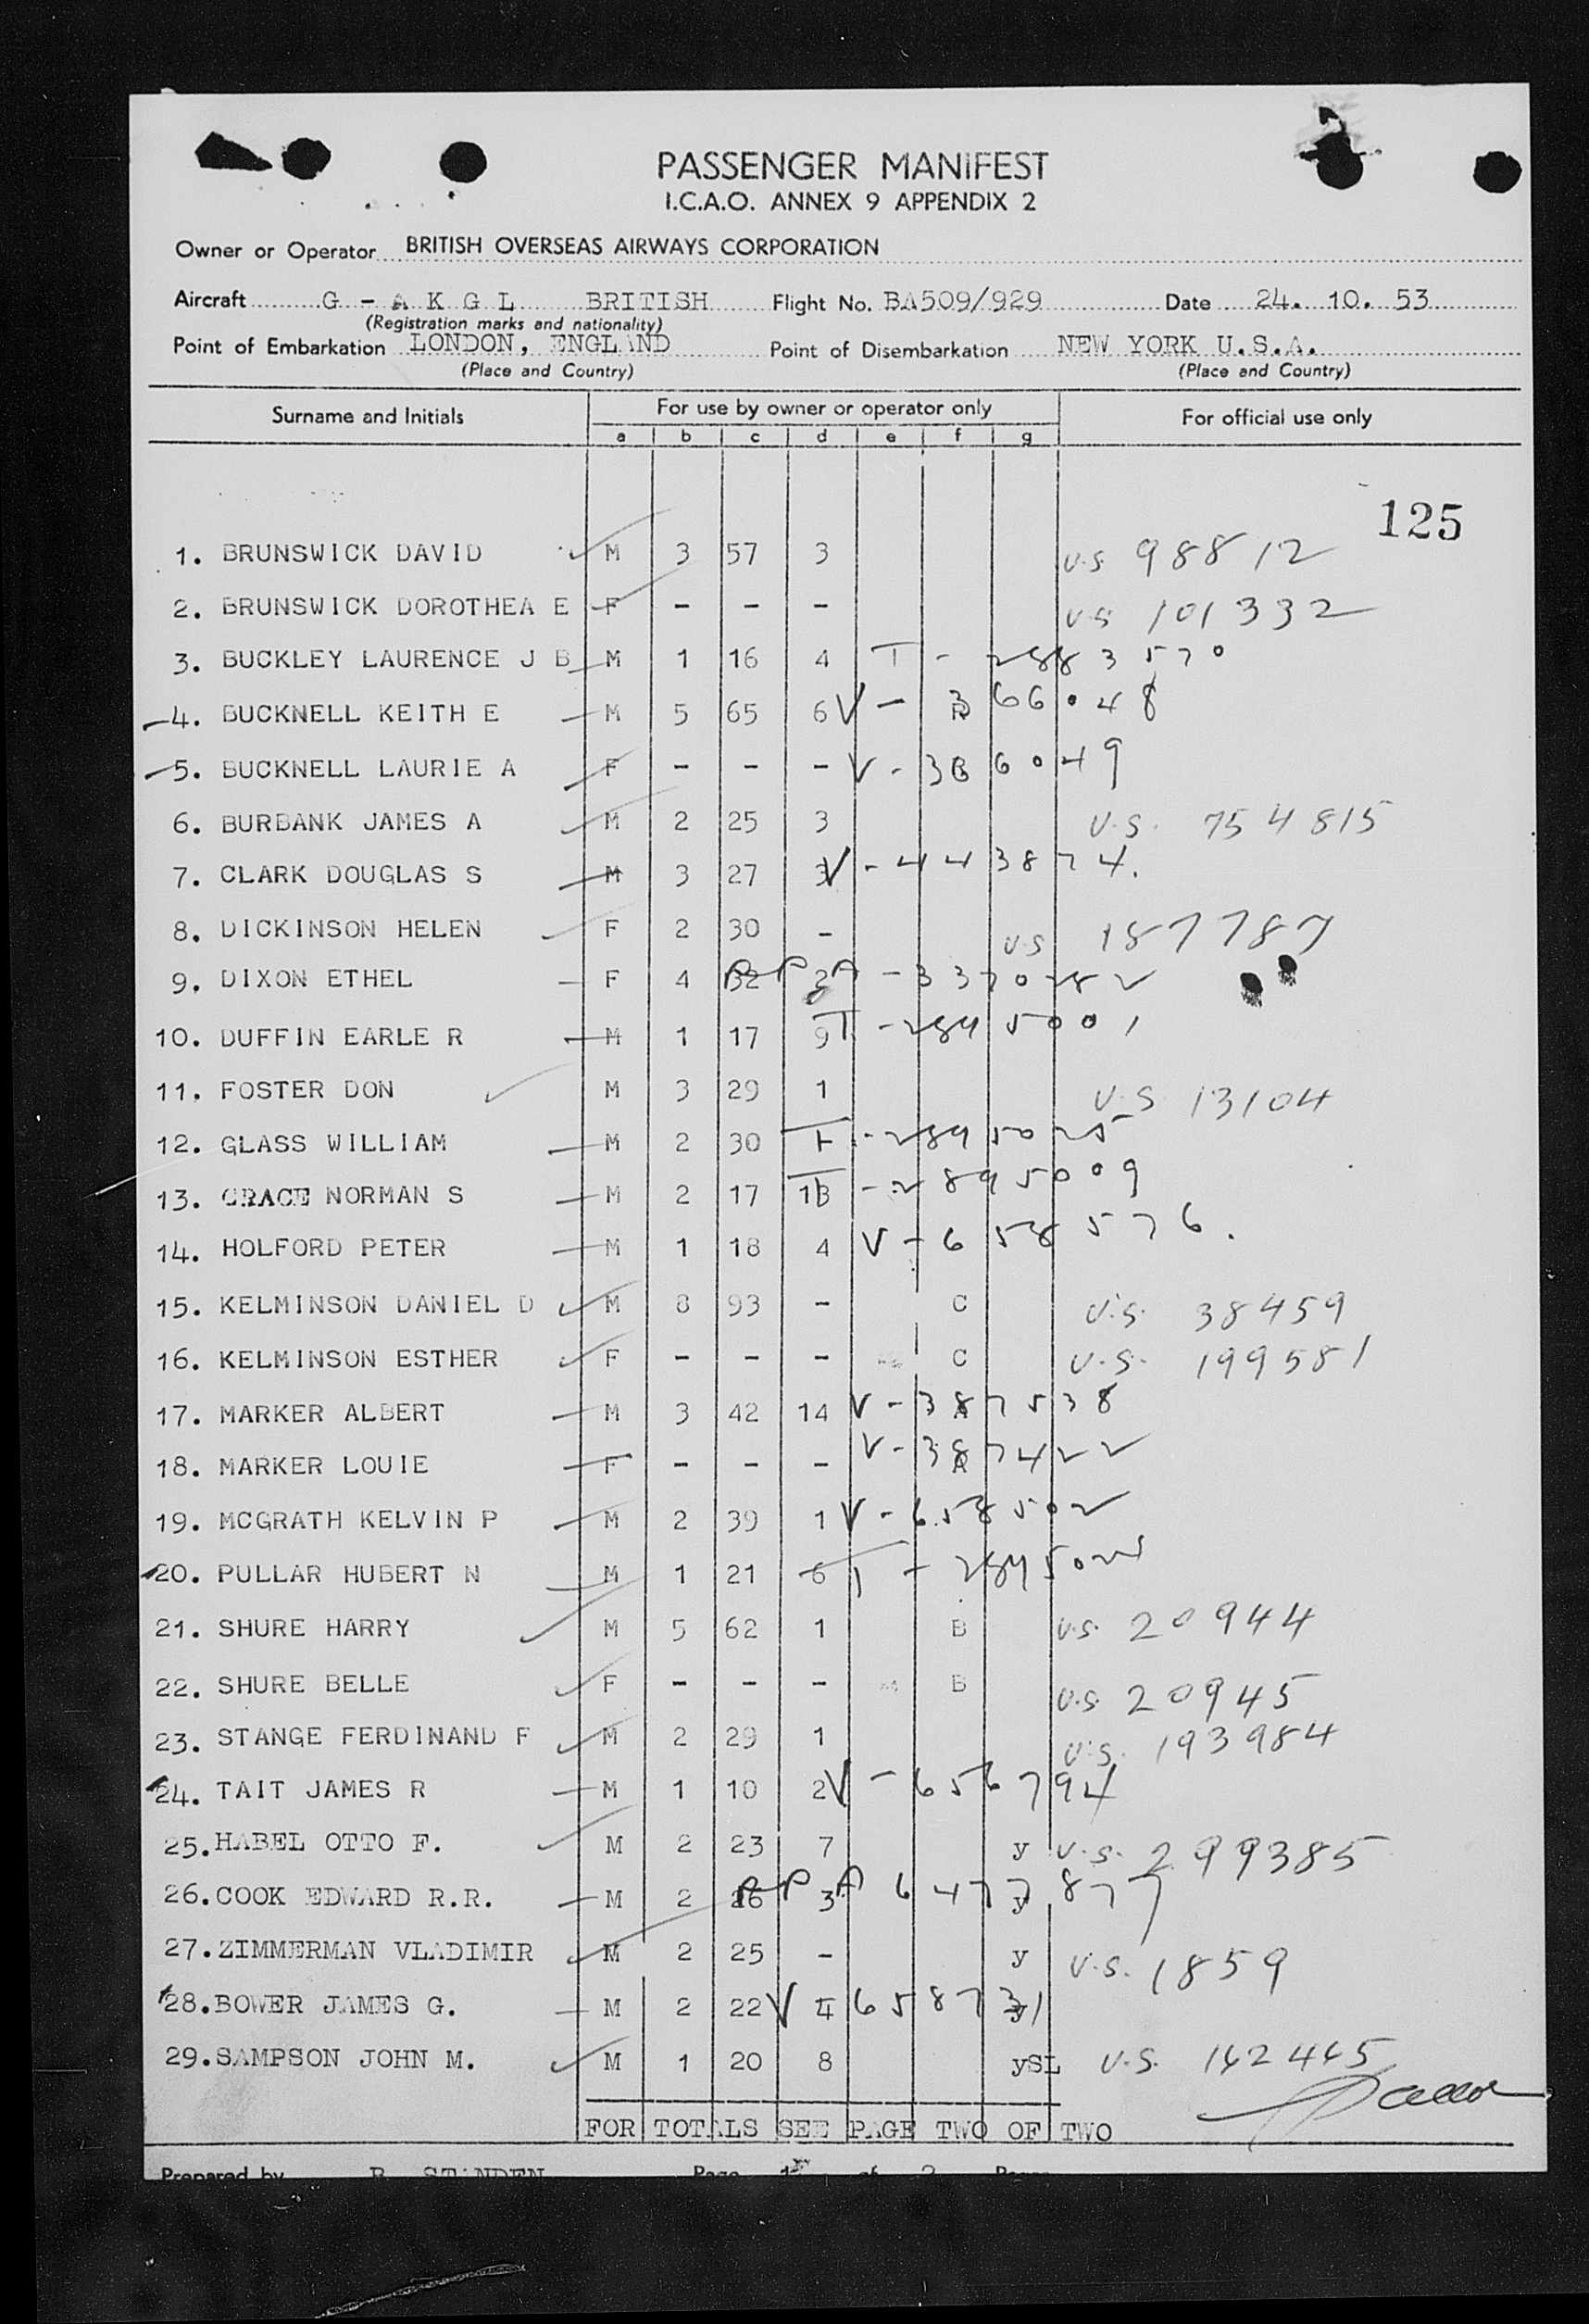 PASSENGER MANIFEST
I.C.A.O. ANNEX 9 APPENDIX 2
Owner or Operator BRITISH OVERSEAS AIRWAYS CORPORATION
Aircraft G - A K G L BRITISH Flight No. BA509/929 Date 24. 10. 53
(Registration marks and nationality)
Point of Embarkation LONDON, ENGLAND Point of Disembarkation NEW YORK U.S.A.
(Place and Country) (Place and Country)
Surname and Initials For use by owner or operator only For official use only
a b c d e f g
125
1. BRUNSWICK DAVID M 3 57 3 U.S. 98812
2. BRUNSWICK DOROTHEA E F - - - U.S. 101332
3. BUCKLEY LAURENCE J B M 1 16 4 T - 2883570
4. BUCKNELL KEITH E M 5 65 6 V - 366048
5. BUCKNELL LAURIE A F - - - V - 366049
6. BURBANK JAMES A M 2 25 3 U.S. 754815
7. CLARK DOUGLAS S M 3 27 3 V - 443874.
8. DICKINSON HELEN F 2 30 - U.S 187787
9. DIXON ETHEL F 4 32 2 - 3370282
10. DUFFIN EARLE R M 1 17 9 T - 2895001
11. FOSTER DON M 3 29 1 U.S 13104
12. GLASS WILLIAM M 2 30 T - 2895025
13. GRACE NORMAN S M 2 17 13 - 2895009
14. HOLFORD PETER M 1 18 4 V - 658576.
15. KELMINSON DANIEL D M 8 93 - C U.S. 38459
16. KELMINSON ESTHER F - - - C U.S. 199581
17. MARKER ALBERT M 3 42 14 V - 387538
18. MARKER LOUIE F - - - V - 387422
19. MCGRATH KELVIN P M 2 39 1 V - 658502
20. PULLAR HUBERT N M 1 21 6 T -
21. SHURE HARRY M 5 62 1 B U.S. 20944
22. SHURE BELLE F - - - B U.S. 20945
23. STANGE FERDINAND F M 2 29 1 U.S. 193984
24. TAIT JAMES R M 1 10 2 V - 656794
25. HABEL OTTO F. M 2 23 7 y U.S. 299385
26. COOK EDWARD R.R. M 2 26 3 y 6477877
27. ZIMMERMAN VLADIMIR M 2 25 - y U.S. 1859
28. BOWER JAMES G. M 2 22 V 4 658731
29. SAMPSON JOHN M. M 1 20 8 ySL U.S. 162465
FOR TOTALS SEE PAGE TWO OF TWO
Prepared by R. STANDEN Page 1 of 2 Pages